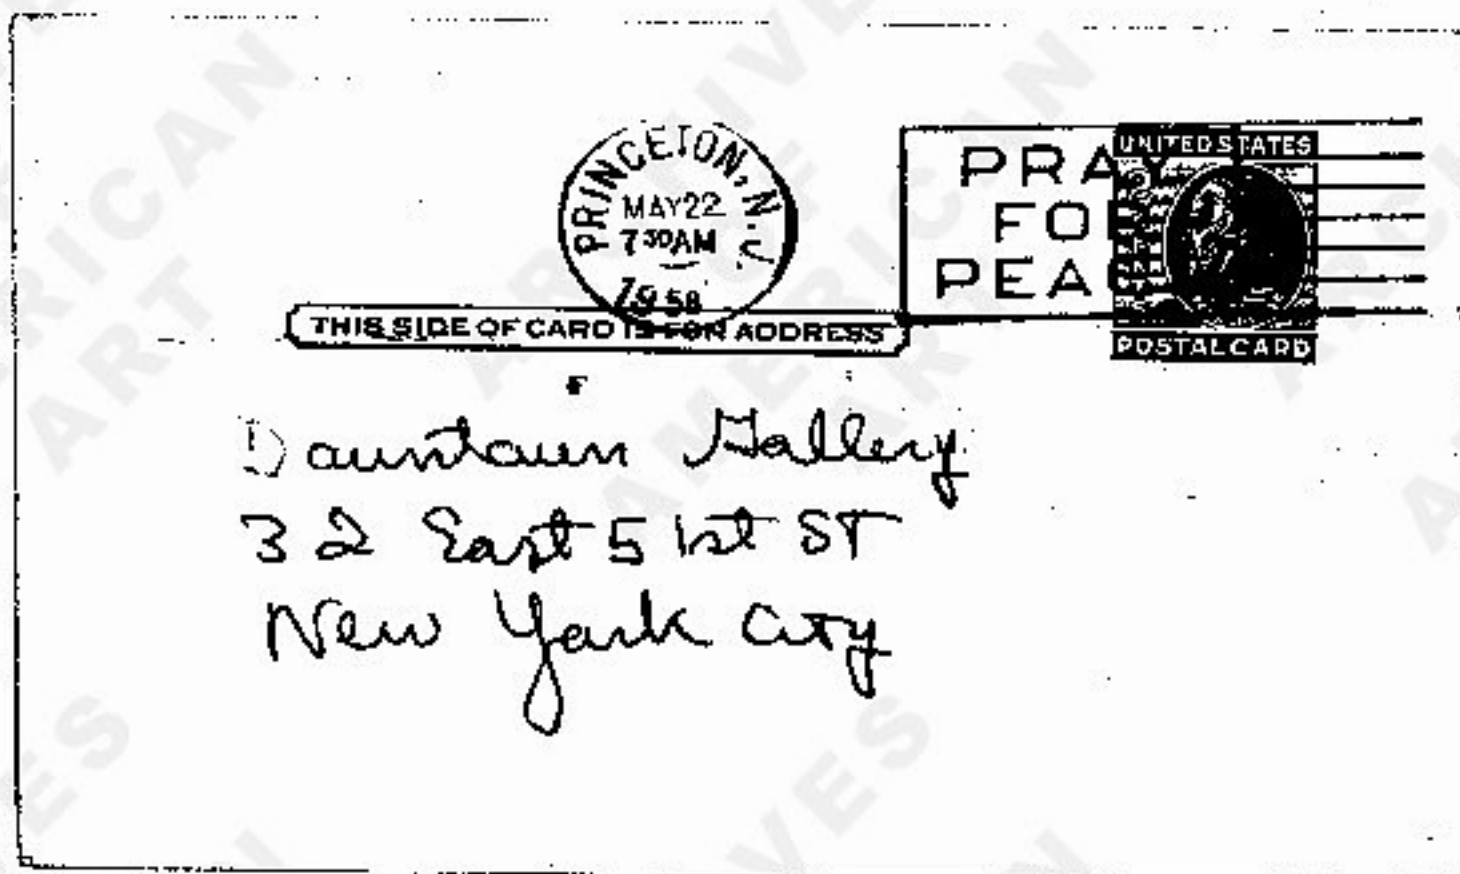 PRINCETON, N.J.
MAY 22
7 30 AM
1958
PRAY
FOR
PEACE
UNITED STATES
POSTAL CARD
THIS SIDE OF CARD IS FOR ADDRESS
Downtown Gallery
32 East 51st ST
New York City
ARCHIVES
OF
AMERICAN
ART